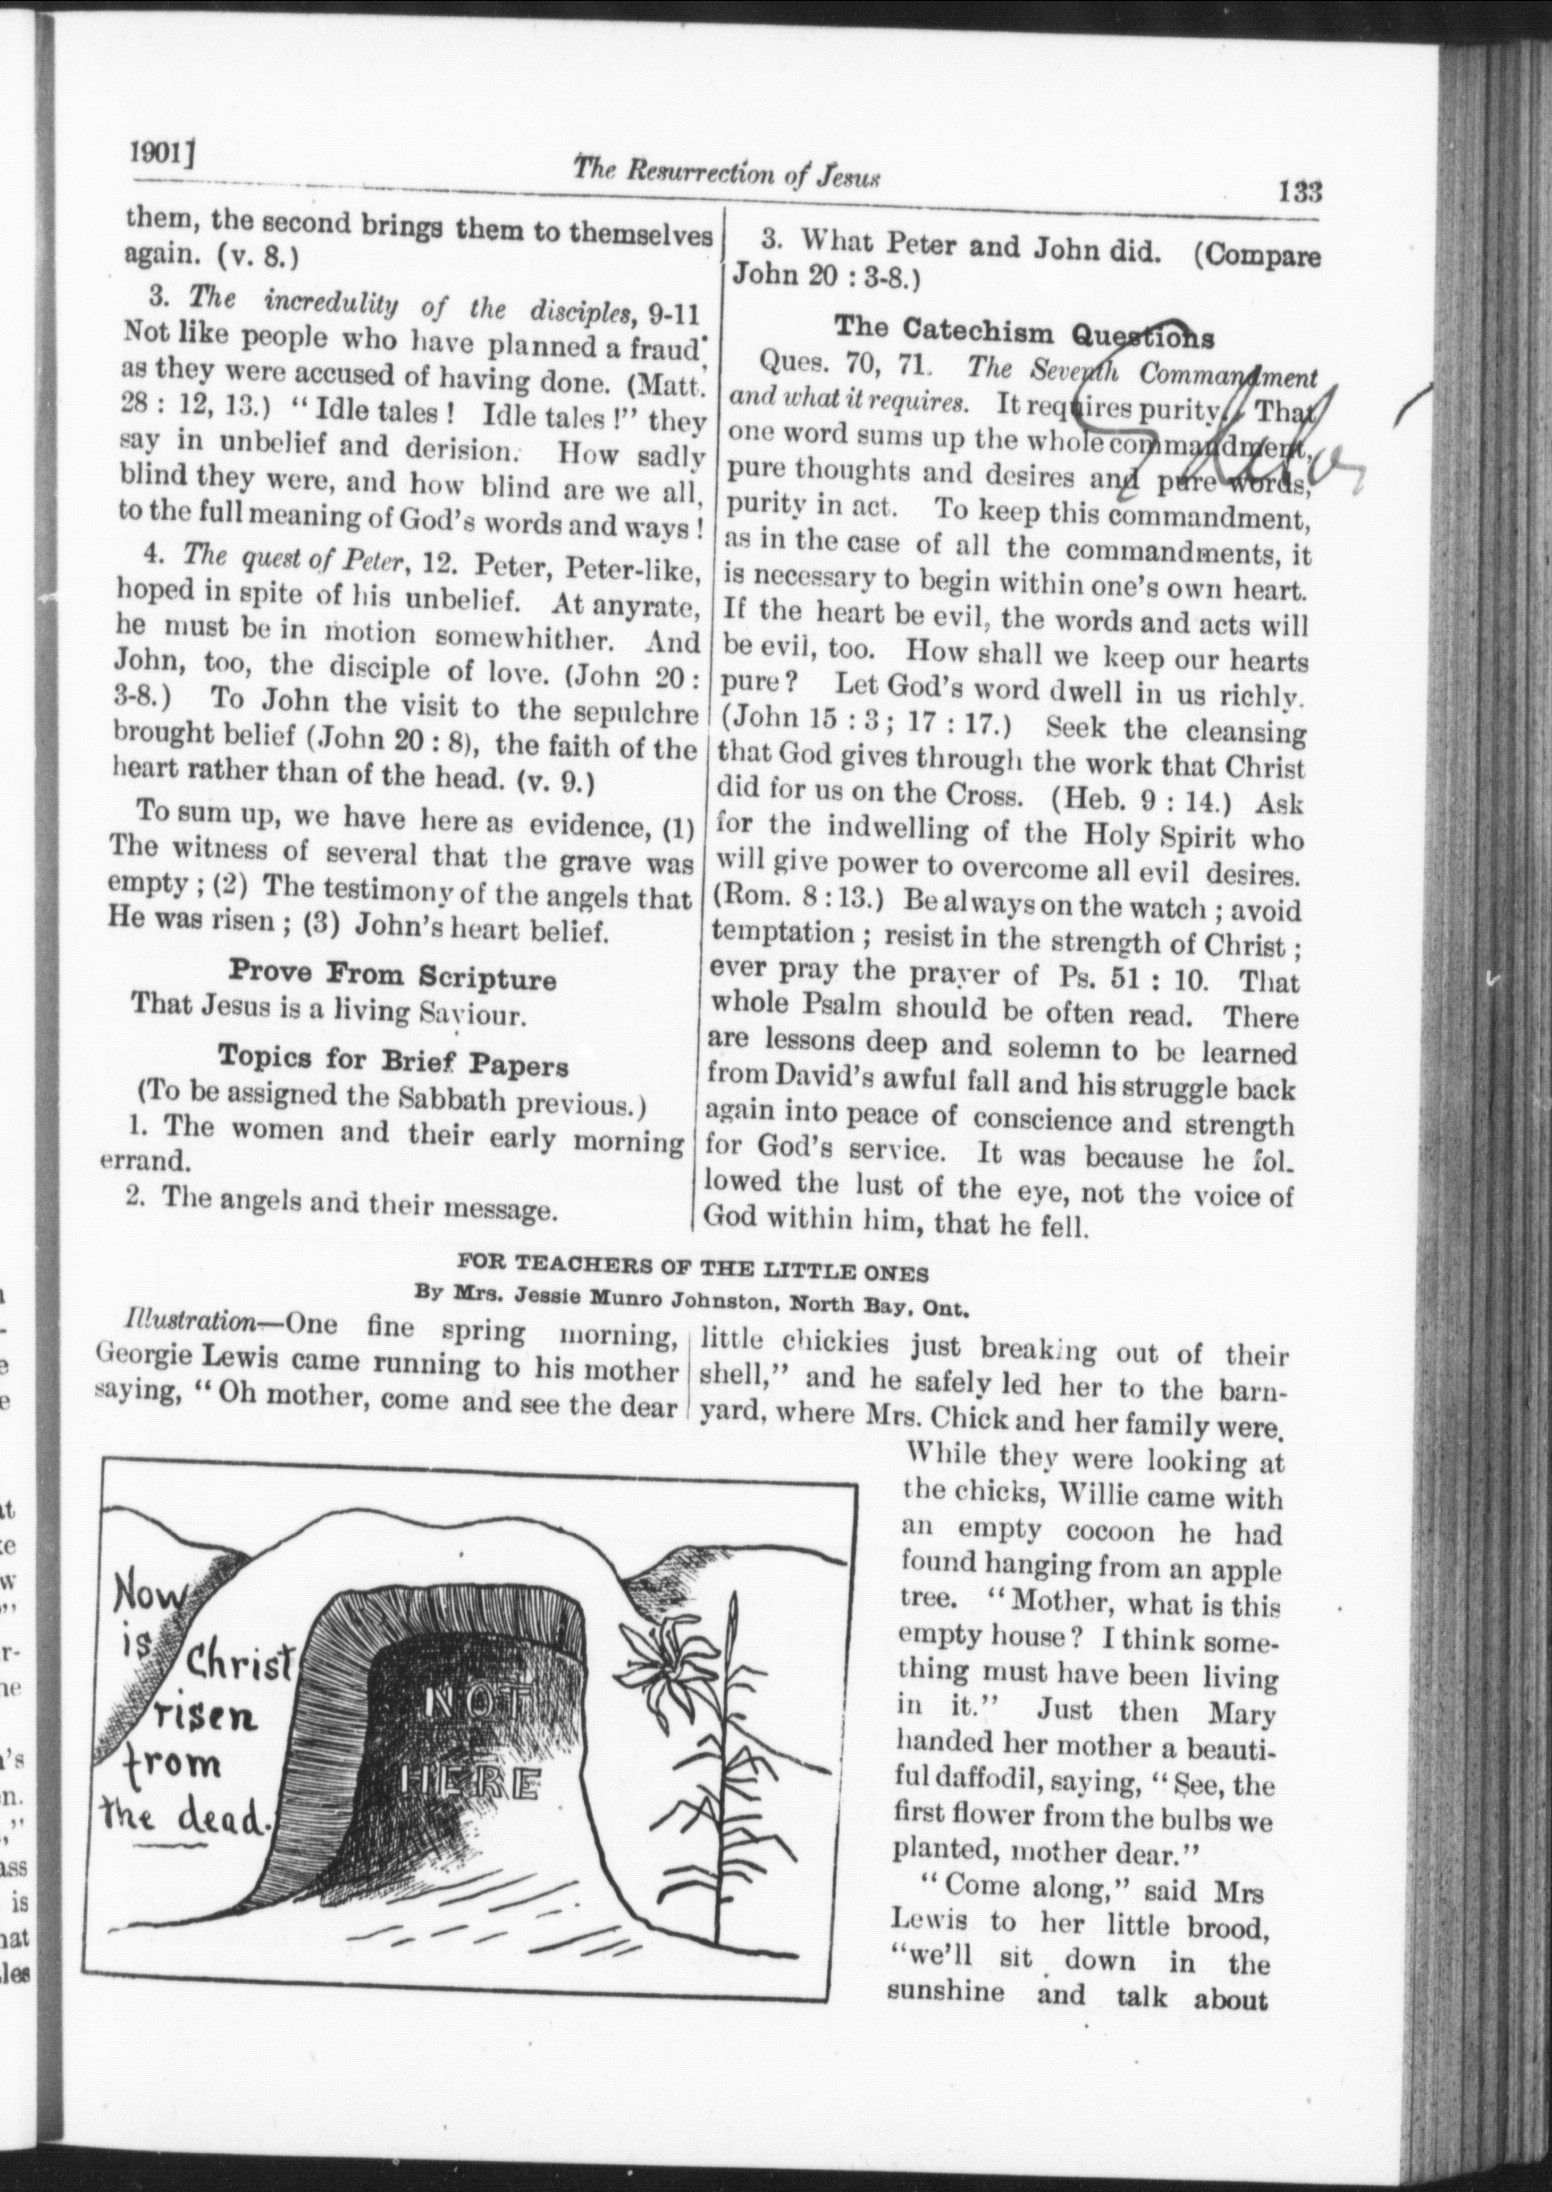 1901]
The Resurrection of Jesus
133
them, the second brings them to themselves
again. (v. 8.)
3. The incredulity of the disciples, 9-11
Not like people who have planned a fraud,
as they were accused of having done. (Matt.
28 : 12, 13.) “Idle tales ! Idle tales !” they
say in unbelief and derision. How sadly
blind they were, and how blind are we all,
to the full meaning of God’s words and ways !
4. The quest of Peter, 12. Peter, Peter-like,
hoped in spite of his unbelief. At anyrate,
he must be in motion somewhither. And
John, too, the disciple of love. (John 20 :
3-8.) To John the visit to the sepulchre
brought belief (John 20 : 8), the faith of the
heart rather than of the head. (v. 9.)
To sum up, we have here as evidence, (1)
The witness of several that the grave was
empty ; (2) The testimony of the angels that
He was risen ; (3) John’s heart belief.
Prove From Scripture
That Jesus is a living Saviour.
Topics for Brief Papers
(To be assigned the Sabbath previous.)
1. The women and their early morning
errand.
2. The angels and their message.
3. What Peter and John did. (Compare
John 20 : 3-8.)
The Catechism Questions
Ques. 70, 71. The Seventh Commandment
and what it requires. It requires purity. That
one word sums up the whole commandment,
pure thoughts and desires and pure words,
purity in act. To keep this commandment,
as in the case of all the commandments, it
is necessary to begin within one’s own heart.
If the heart be evil, the words and acts will
be evil, too. How shall we keep our hearts
pure? Let God’s word dwell in us richly.
(John 15 : 3; 17 : 17.) Seek the cleansing
that God gives through the work that Christ
did for us on the Cross. (Heb. 9 : 14.) Ask
for the indwelling of the Holy Spirit who
will give power to overcome all evil desires.
(Rom. 8 : 13.) Be always on the watch ; avoid
temptation ; resist in the strength of Christ ;
ever pray the prayer of Ps. 51 : 10. That
whole Psalm should be often read. There
are lessons deep and solemn to be learned
from David’s awful fall and his struggle back
again into peace of conscience and strength
for God’s service. It was because he fol-
lowed the lust of the eye, not the voice of
God within him, that he fell.
FOR TEACHERS OF THE LITTLE ONES
By Mrs. Jessie Munro Johnston, North Bay, Ont.
Illustration—One fine spring morning,
Georgie Lewis came running to his mother
saying, “Oh mother, come and see the dear
little chickies just breaking out of their
shell,” and he safely led her to the barn-
yard, where Mrs. Chick and her family were.
While they were looking at
the chicks, Willie came with
an empty cocoon he had
found hanging from an apple
tree. “Mother, what is this
empty house? I think some-
thing must have been living
in it.” Just then Mary
handed her mother a beauti-
ful daffodil, saying, “See, the
first flower from the bulbs we
planted, mother dear.”
“Come along,” said Mrs
Lewis to her little brood,
“we’ll sit down in the
sunshine and talk about
Now
is
Christ
risen
from
the dead.
NOT
HERE